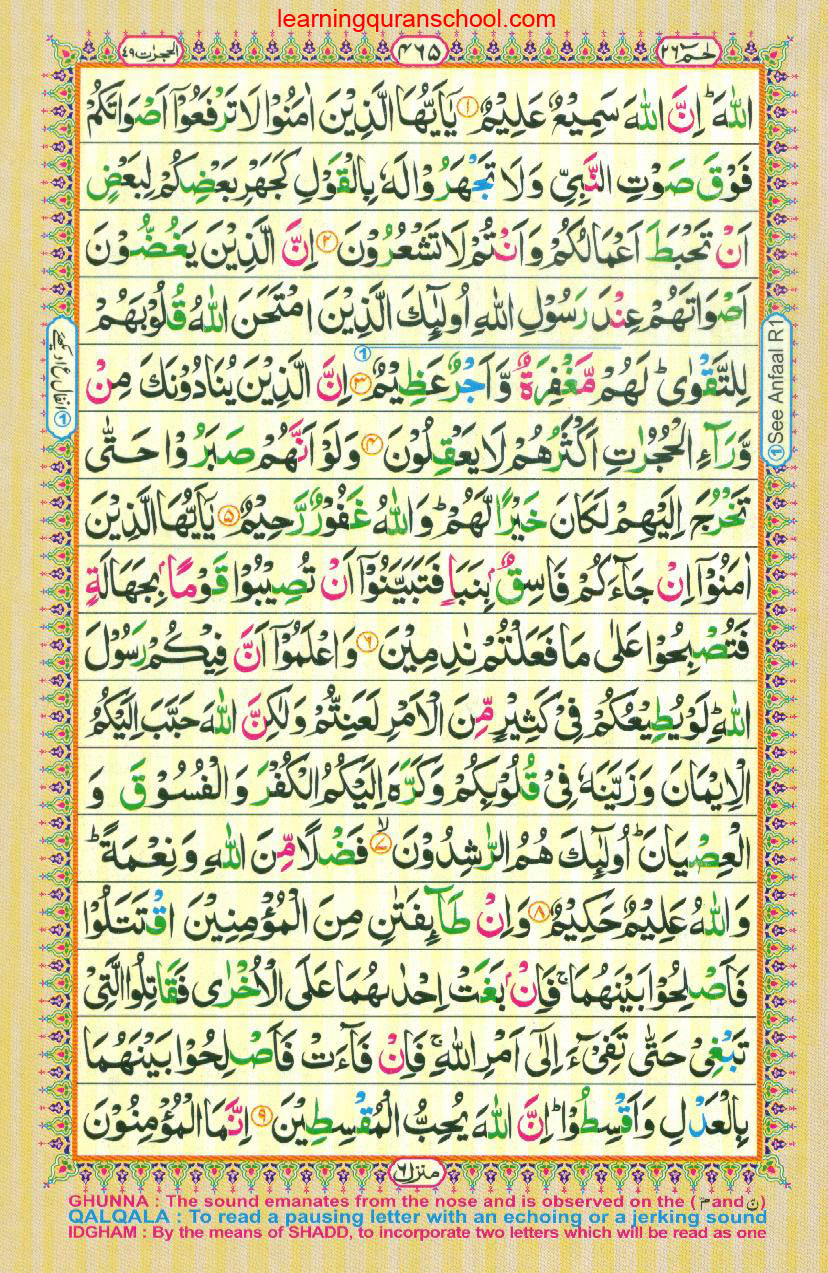 learningquranschool.com
الحجرات ٤٩
٤٦٥
حٰمٓ ٢٦
اللّٰهَ ؕ اِنَّ اللّٰهَ سَمِيْعٌ عَلِيْمٌ ۝۱ يٰۤاَيُّهَا الَّذِيْنَ اٰمَنُوْا لَا تَرْفَعُوْۤا اَصْوَاتَكُمْ
فَوْقَ صَوْتِ النَّبِيِّ وَلَا تَجْهَرُوْا لَهٗ بِالْقَوْلِ كَجَهْرِ بَعْضِكُمْ لِبَعْضٍ
اَنْ تَحْبَطَ اَعْمَالُكُمْ وَاَنْتُمْ لَا تَشْعُرُوْنَ ۝۲ اِنَّ الَّذِيْنَ يَغُضُّوْنَ
اَصْوَاتَهُمْ عِنْدَ رَسُوْلِ اللّٰهِ اُولٰٓئِكَ الَّذِيْنَ امْتَحَنَ اللّٰهُ قُلُوْبَهُمْ
لِلتَّقْوٰى ؕ لَهُمْ مَّغْفِرَةٌ وَّاَجْرٌ عَظِيْمٌ ۝۳ اِنَّ الَّذِيْنَ يُنَادُوْنَكَ مِنْ
وَّرَآءِ الْحُجُرٰتِ اَكْثَرُهُمْ لَا يَعْقِلُوْنَ ۝۴ وَلَوْ اَنَّهُمْ صَبَرُوْا حَتّٰى
تَخْرُجَ اِلَيْهِمْ لَكَانَ خَيْرًا لَّهُمْ ؕ وَاللّٰهُ غَفُوْرٌ رَّحِيْمٌ ۝۵ يٰۤاَيُّهَا الَّذِيْنَ
اٰمَنُوْۤا اِنْ جَآءَكُمْ فَاسِقٌۢ بِنَبَاٍ فَتَبَيَّنُوْۤا اَنْ تُصِيْبُوْا قَوْمًۢا بِجَهَالَةٍ
فَتُصْبِحُوْا عَلٰى مَا فَعَلْتُمْ نٰدِمِيْنَ ۝۶ وَاعْلَمُوْۤا اَنَّ فِيْكُمْ رَسُوْلَ
اللّٰهِ ؕ لَوْ يُطِيْعُكُمْ فِيْ كَثِيْرٍ مِّنَ الْاَمْرِ لَعَنِتُّمْ وَلٰكِنَّ اللّٰهَ حَبَّبَ اِلَيْكُمُ
الْاِيْمَانَ وَزَيَّنَهٗ فِيْ قُلُوْبِكُمْ وَكَرَّهَ اِلَيْكُمُ الْكُفْرَ وَالْفُسُوْقَ وَ
الْعِصْيَانَ ؕ اُولٰٓئِكَ هُمُ الرّٰشِدُوْنَ ۝۷ۙ فَضْلًا مِّنَ اللّٰهِ وَنِعْمَةً ؕ
وَاللّٰهُ عَلِيْمٌ حَكِيْمٌ ۝۸ وَاِنْ طَآئِفَتٰنِ مِنَ الْمُؤْمِنِيْنَ اقْتَتَلُوْا
فَاَصْلِحُوْا بَيْنَهُمَا ۚ فَاِنْۢ بَغَتْ اِحْدٰىهُمَا عَلَى الْاُخْرٰى فَقَاتِلُوا الَّتِيْ
تَبْغِيْ حَتّٰى تَفِيْٓءَ اِلٰۤى اَمْرِ اللّٰهِ ۚ فَاِنْ فَآءَتْ فَاَصْلِحُوْا بَيْنَهُمَا
بِالْعَدْلِ وَاَقْسِطُوْا ؕ اِنَّ اللّٰهَ يُحِبُّ الْمُقْسِطِيْنَ ۝۹ اِنَّمَا الْمُؤْمِنُوْنَ
① See Anfaal R1
منزل ٦
GHUNNA : The sound emanates from the nose and is observed on the ( مّ and نّ )
QALQALA : To read a pausing letter with an echoing or a jerking sound
IDGHAM : By the means of SHADD, to incorporate two letters which will be read as one